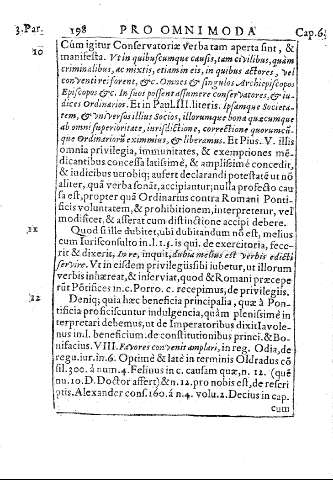 3.Par. 198 PRO OMNIMODA Cap.6.
10 Cùm igitur Conservatoriæ verba tam aperta sint, &
manifesta. Vt in quibuscumque causis, tam civilibus, quàm
criminalibus, ac mixtis, etiam in eis, in quibus actores, vel
conventi rei forent, &c. Omnes & singulos Archiepiscopos
Episcopos &c. In suos possent assumere conservatores, & iu-
dices Ordinarios. Et in Paul. III. literis. Ipsamque Societa-
tem, & vniversos illius Socios, illorumque bona quæcumque
ab omni superioritate, iurisdictione, correctione quorumcũ-
que Ordinariorũ eximimus, & liberamus. Et Pius. V. illis
omnia privilegia, immunitates, & exemptiones mẽ-
dicantibus concessa latissimè, & amplissimè concedit,
& iudicibus utrobiq; aufert declarandi potestatẽ ut nõ
aliter, quã verba sonãt, accipiantur; nulla profectò cau
sa est, propter quã Ordinarius contra Romani Ponti-
ficis voluntatem, & prohibitionem, interpretetur, vel
modificet, & asserat cum distinctione accipi debere.
11 Quod si ille dubitet, ubi dubitandum nõ est, melius
cum Iurisconsulto in.l.1.§. is qui. de exercitoria, fece-
rit & dixeris, In re, inquit, dubia melius est verbis edicti
servire. Vt in eisdem privilegiis sibi iubetur, ut illorum
verbis inhæreat, & inserviat, quod & Romani præcepe
rũt Põtifices in.c. Porro. c. recepimus, de privilegiis.
12 Deniq; quia hæc beneficia principalia, quæ à Pon-
tificia proficiscuntur indulgencia, quàm plenissimè in
terpretari debemus, ut de Imperatoribus dixit Iavole-
nus in.l. beneficium. de constitutionibus princi. & Bo-
nifacius. VIII. Favores convenit ampliari, in reg. Odia, de
regu. iur. in.6. Optimè & latè in terminis Oldradus cõ
sil. 300. à num.4. Felinus in c. causam quæ, n. 12. (quẽ
nu. 10. D. Doctor affert) & n. 12. pro nobis est, de rescri
ptis. Alexander cons. 160. à n.4. volu. 2. Decius in cap.
cum